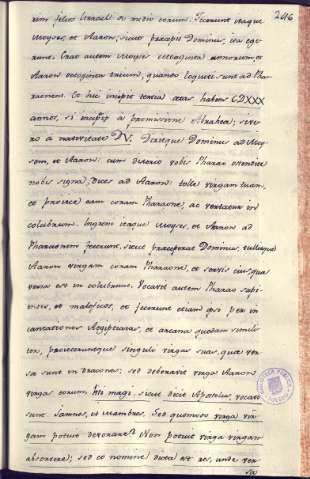 246
rim filios Israel de medio eorum. Fecerunt itaque
Moyses, et Aaron, sicut præcepit Dominus, ita ege
runt. Erat autem Moyses octoginta annorum, et
Aaron octoginta trium, quando loquuti sunt ad Pha
raonem. Et hic incipit tertia ætas habens CDXXX
annos, si incipit à promissione Abrahæ; si ve
ro à nativitate
Dixitque Dominus ad Moy
sem, et Aaron: cum dixerit vobis Pharao ostendite
nobis signa; dices ad Aaron: tolle virgam tuam,
et proiice eam coram Pharaone, ac vertatur in
colubrum. Ingressi itaque Moyses, et Aaron ad
Pharaonem fecerunt, sicut præceperat Dominus, tulitque
Aaron virgam coram Pharaone, et servis eius, quæ
versa est in colubrum. Vocavit autem Pharao sapi
entes, et maleficos, et fecerunt etiam ipsi per in
cantationes Aegyptiacas, et arcana quædam simili
ter, proieceruntque singuli virgas suas, quæ ver
sæ sunt in dracones; sed devoravit virga Aaron
virgas eorum. Hi magi sicut dicit Apostolus, vocati
sunt Iamnes, et Mambres. Sed quomodo virga vir
gam potuit devorare? Non potuit virga virgam
absorbere; sed eo nomine dicta est res, unde ver
sa